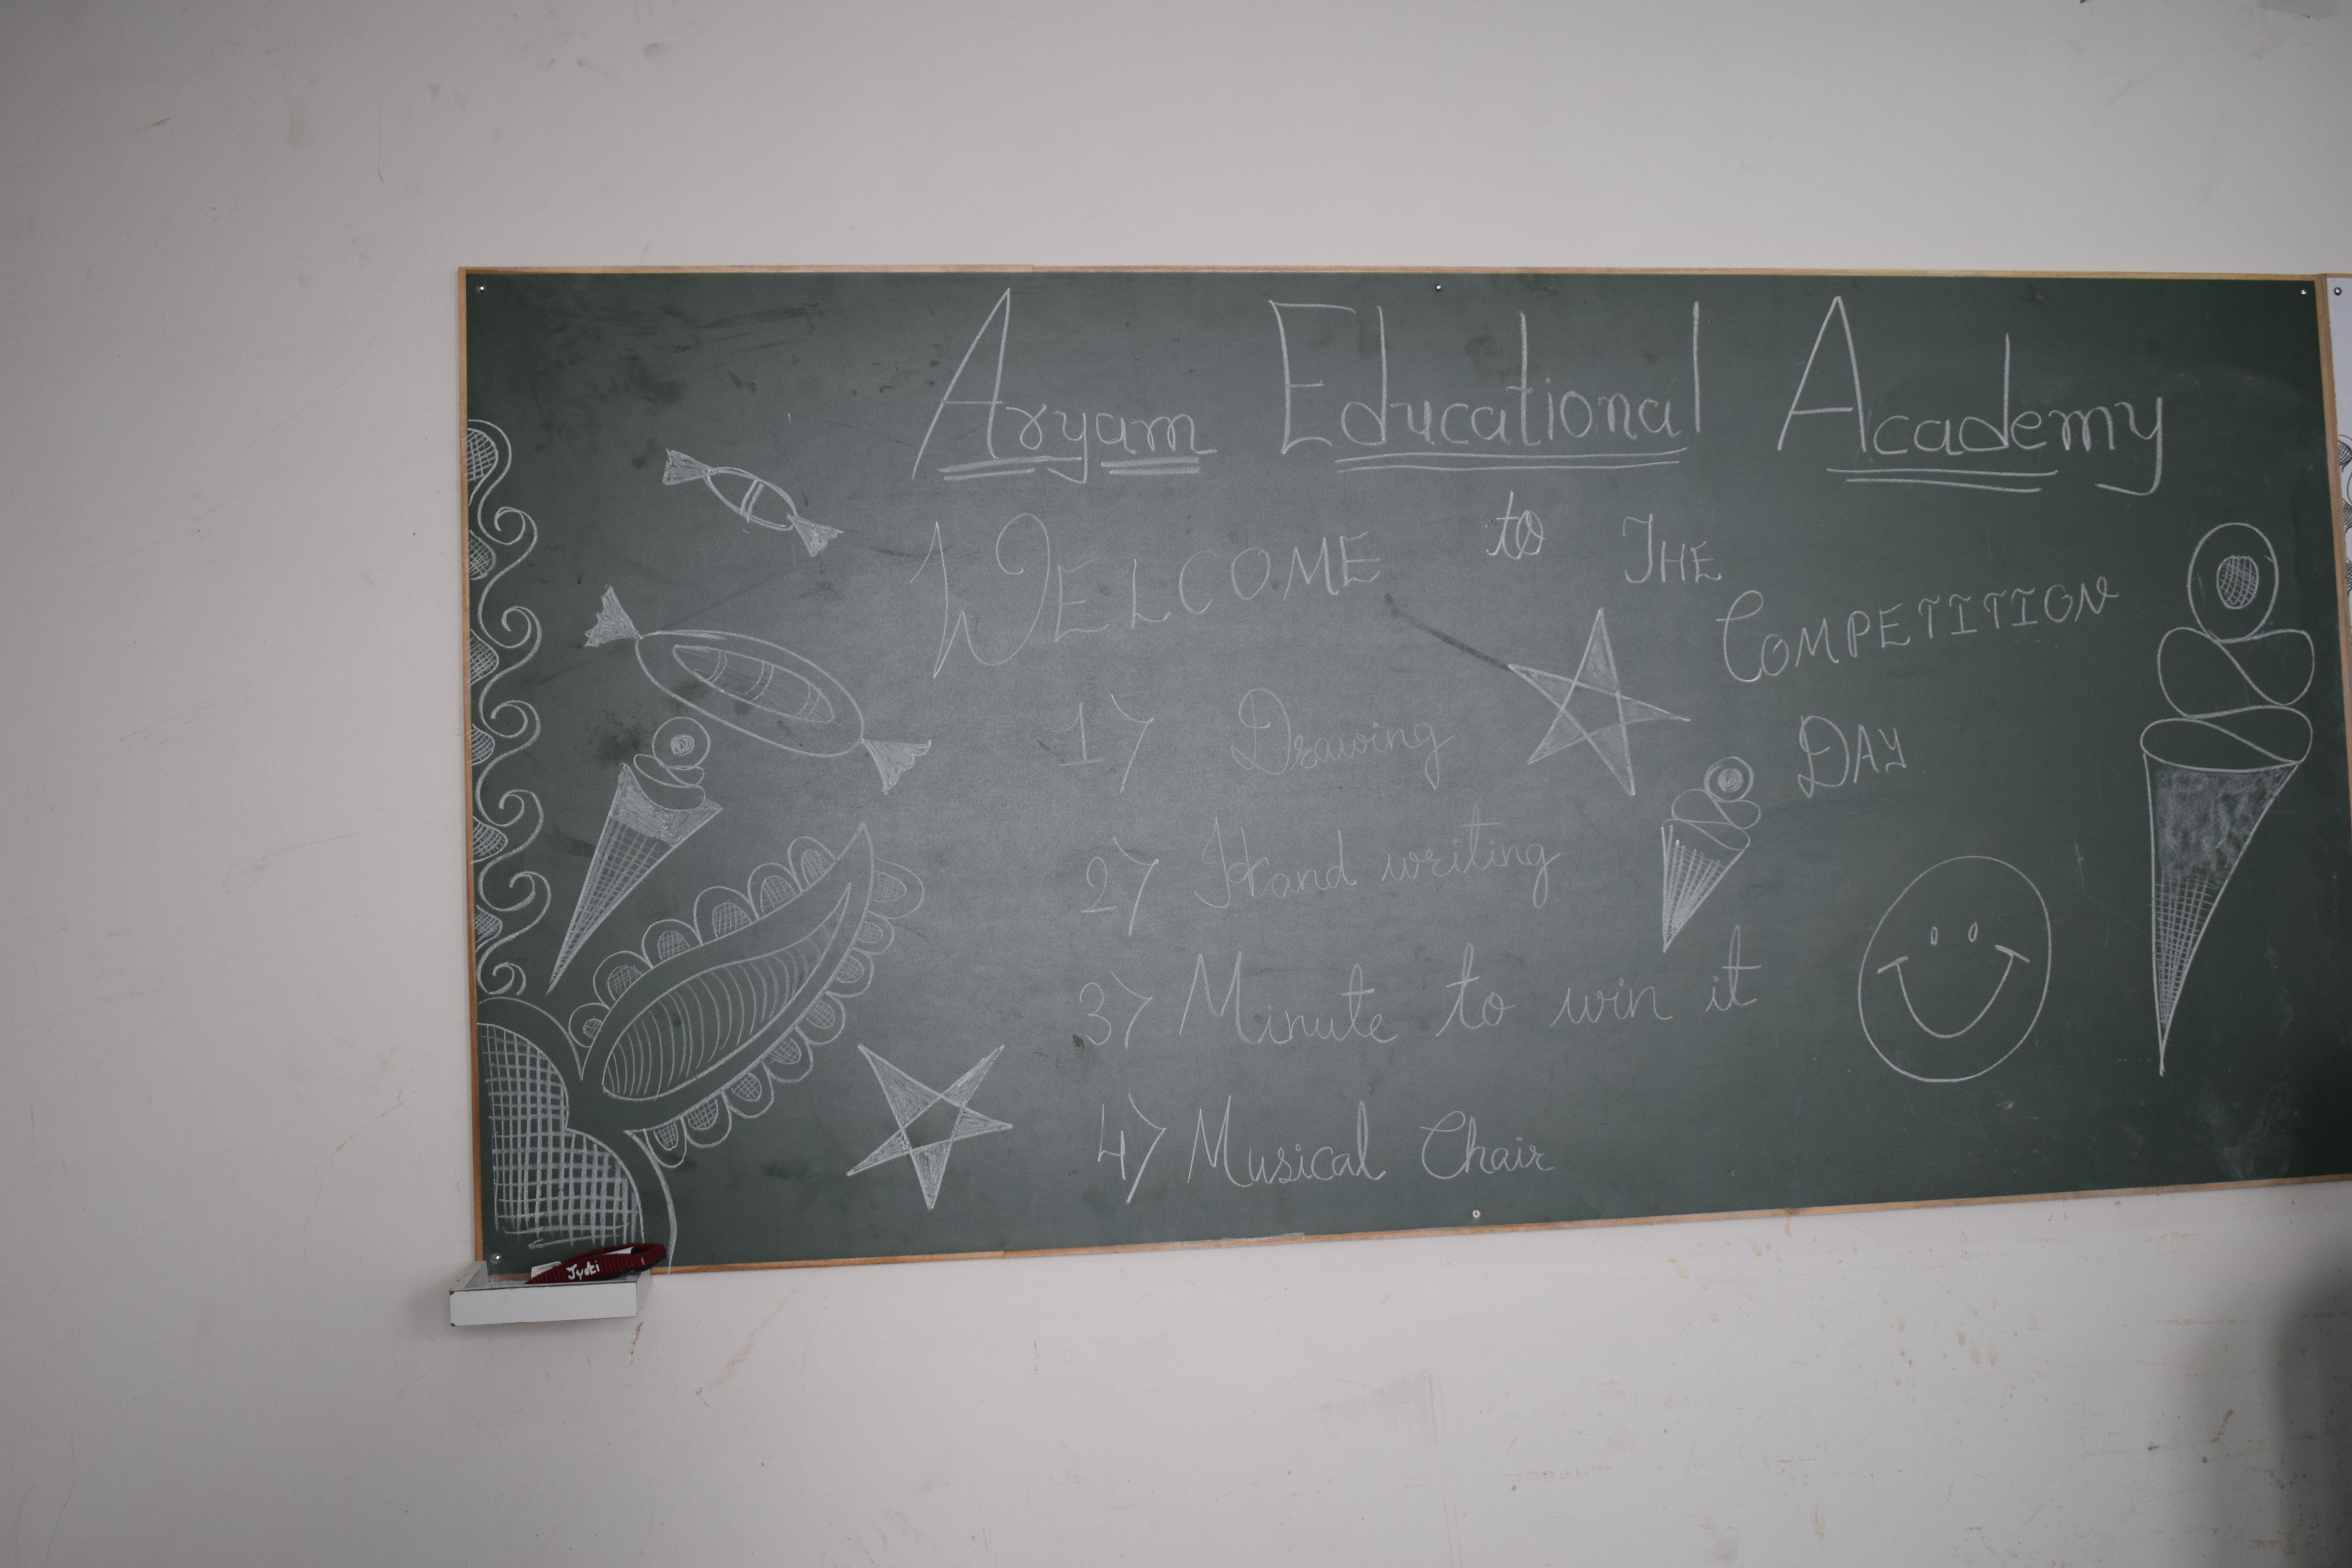 Aryam Educational Academy
WELCOME to THE
COMPETITION
DAY
1> Drawing
2> Hand writing
3> Minute to win it
4> Musical Chair
Jyoti